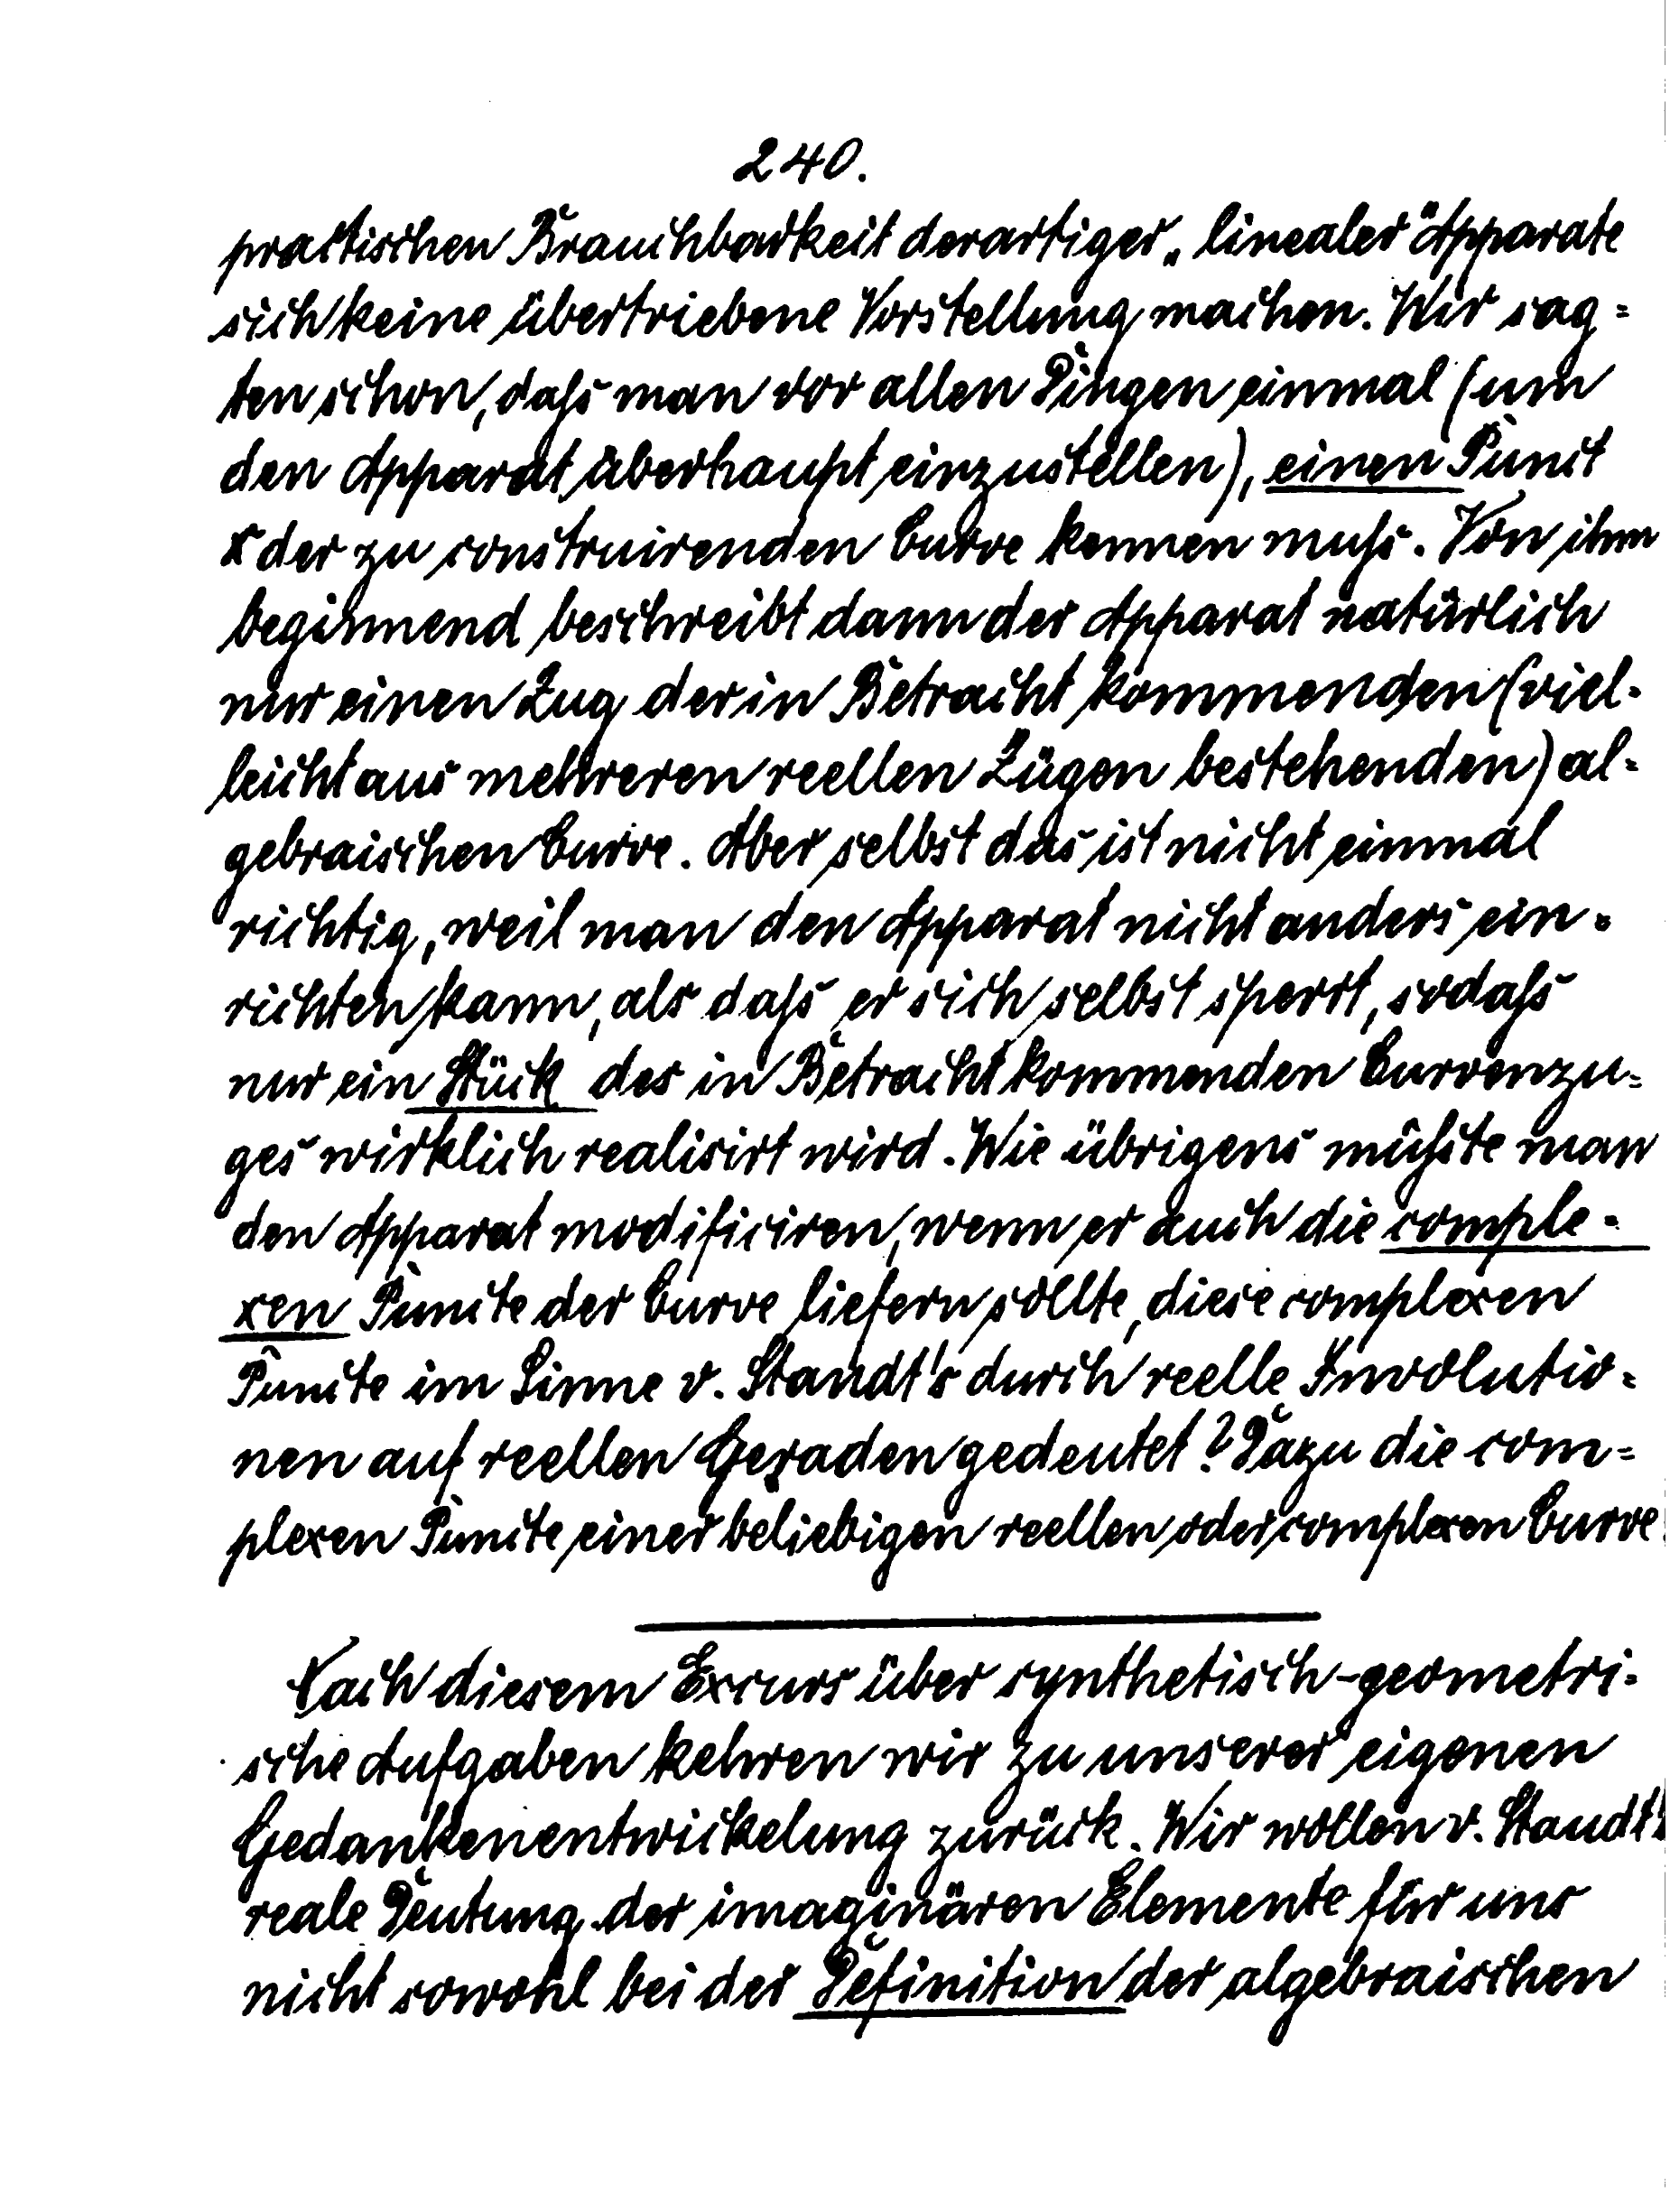 240.
practischen Brauchbarkeit derartiger „linealer“ Apparate
sich keine übertriebene Vorstellung machen. Wir sag=
ten schon, dass man vor allen Dingen einmal (um
den Apparat überhaupt einzustellen), einen Punct
x der zu construirenden Curve kennen muss. Von ihm
beginnend beschreibt dann der Apparat natürlich
nur einen Zug der in Betracht kommenden (viel-
leicht aus mehreren reellen Zügen bestehenden) al-
gebraischen Curve. Aber selbst das ist nicht einmal
richtig, weil man den Apparat nicht anders ein-
richten kann, als dass er sich selbst sperrt, sodass
nur ein Stück des in Betracht kommenden Curvenzu=
ges wirklich realisirt wird. Wie übrigens müsste man
den Apparat modificiren, wenn er auch die comple-
xen Puncte der Curve liefern sollte, diese complexen
Puncte im Sinne v. Staudt's durch reelle Involutio=
nen auf reellen Geraden gedeutet? Dazu die com=
plexen Puncte einer beliebigen reellen oder complexen Curve
Nach diesem Excurs über synthetisch-geometri-
sche Aufgaben kehren wir zu unserer eigenen
Gedankenentwickelung zurück. Wir wollen v. Staudt's
reale Deutung der imaginären Elemente für uns
nicht sowohl bei der Definition der algebraischen